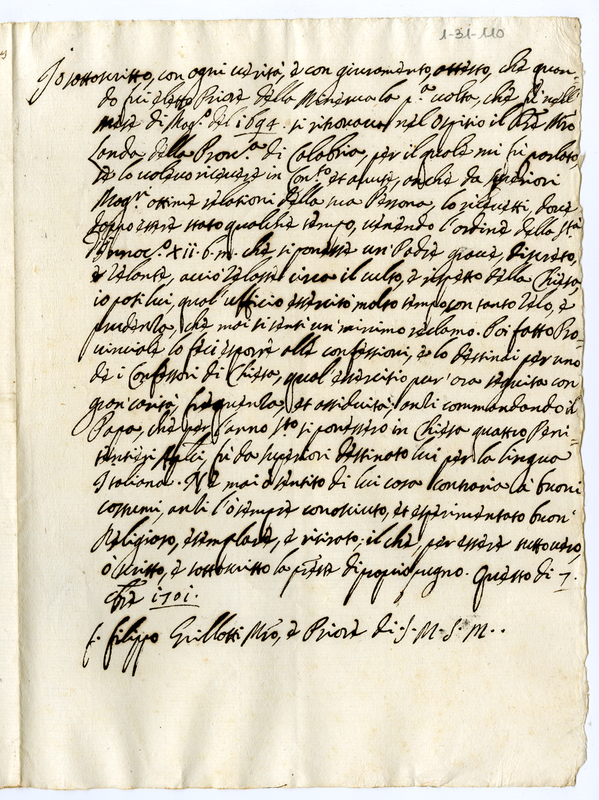 1-31-110
Io sottoscritto, con ogni verità, e con giuramento attesto, che quan-
do fui eletto Priore della Minerva la p.ª volta, che fù nell'
mese di Mag.º del 1694. si ritrovava nel Ospitio il Pre Mro
Landa della Prov.ª di Calabria, per il quale mi fù parlato,
se lo volevo ricevere in Con.to et avute, anche da superiori
Magri ottime relationi della sua Persona, lo ricevetti, dove
doppo essere stato qualche tempo, venendo l'ordine della Stà
d'Innoc.º XII. b. m. che si ponesse un Padre grave, discreto,
e zelante, acciò zelasse circa il culto, e rispetto della Chiesa
io posi lui, qual'ufficio esercitò molto tempo con tanto zelo, e
prudenza, che mai si sentì un minimo reclamo. Poi fatto Pro-
vinciale lo feci esporre alle confessioni, e lo destinai per uno
de i Confessori di Chiesa, qual esercitio par'ora seguita con
gran carità, frequenza, et assiduità; anzi commandando il
Papa, che per l'anno Sto si ponessero in Chiesa quattro Peni-
tentieri Aplci, fù da superiori destinato lui per la lingua
Italiana. Nè mai ò sentito di lui cosa contraria à buoni
costumi, anzi l'ò sempre conosciuto, et esperimentato buon'
Religioso, esemplare, e ritirato; il che per essere tutto vero,
ò scritto, e sottoscritto la prese di proprio pugno. Questo dì 7.
bre 1701.
f. Filippo Grillotti Mro, e Priore di S. M. S. M..